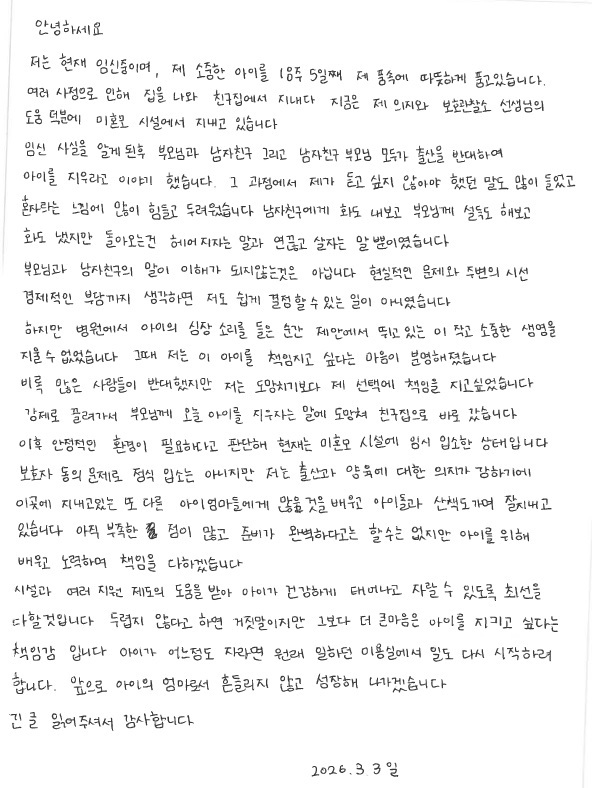 안녕하세요
저는 현재 임신중이며, 제 소중한 아이를 18주 5일째 제 품속에 따뜻하게 품고있습니다.
여러 사정으로 인해 집을 나와 친구집에서 지내다 지금은 제 의지와 보호관찰소 선생님의
도움 덕분에 미혼모 시설에서 지내고 있습니다
임신 사실을 알게 된후 부모님과 남자친구 그리고 남자친구 부모님 모두가 출산을 반대하여
아이를 지우라고 이야기 했습니다. 그 과정에서 제가 듣고 싶지 않아야 했던 말도 많이 들었고
혼자라는 느낌에 많이 힘들고 두려웠습니다 남자친구에게 화도 내보고 부모님께 설득도 해보고
화도 냈지만 돌아오는건 헤어지자는 말과 연끊고 살자는 말 뿐이였습니다
부모님과 남자친구의 말이 이해가 되지않는것은 아닙니다 현실적인 문제와 주변의 시선
경제적인 부담까지 생각하면 저도 쉽게 결정할 수 있는 일이 아니였습니다
하지만 병원에서 아이의 심장 소리를 들은 순간 제안에서 뛰고 있는 이 작고 소중한 생명을
지울 수 없었습니다 그때 저는 이 아이를 책임지고 싶다는 마음이 분명해졌습니다
비록 많은 사람들이 반대했지만 저는 도망치기보다 제 선택에 책임을 지고싶었습니다
강제로 끌려가서 부모님께 오늘 아이를 지우자는 말에 도망쳐 친구집으로 바로 갔습니다
이후 안정적인 환경이 필요하다고 판단해 현재는 미혼모 시설에 임시 입소한 상태입니다
보호자 동의 문제로 정식 입소는 아니지만 저는 출산과 양육에 대한 의지가 강하기에
이곳에 지내고있는 또 다른 아이엄마들에게 많을 것을 배우고 아이들과 산책도가며 잘지내고
있습니다 아직 부족한 점이 많고 준비가 완벽하다고는 할수는 없지만 아이를 위해
배우고 노력하며 책임을 다하겠습니다
시설과 여러 지원 제도의 도움을 받아 아이가 건강하게 태어나고 자랄 수 있도록 최선을
다할것입니다 두렵지 않다고 하면 거짓말이지만 그보다 더 큰마음은 아이를 지키고 싶다는
책임감 입니다 아이가 어느정도 자라면 원래 일하던 미용실에서 일도 다시 시작하려
합니다. 앞으로 아이의 엄마로서 흔들리지 않고 성장해 나가겠습니다
긴 글 읽어주셔서 감사합니다
2026.3.3일